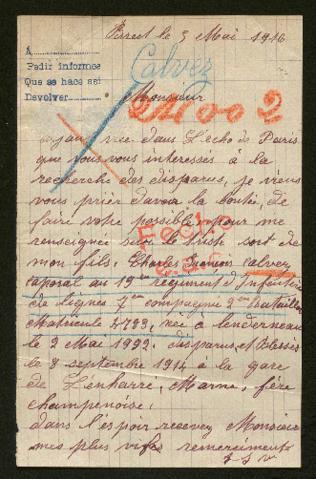 Brest le 3 Mai 1916
A
Pedir informes
Que se hace asi
Devolver
Calvez
Monsieur
2
jai vue dans L'écho de Paris
que vous vous interesses a la
recherche des disparus, je viens
vous prier davoir la bonté, de
faire votre possible pour me
renseigner sur le triste sort de
mon fils, Charles François Calvez
caporal au 19eme regiment d'Infanterie
de lignes 7eme compagnie 2eme bataillon
Matricule 4783, née à Lenderneau
le 2 Mai 1892. disparus et Blessés
le 8 septembre 1914 à la gare
de Lenharre, Marne, fère
champenoise.
dans l'éspoir recevez Monsieur
mes plus vifs remerciments